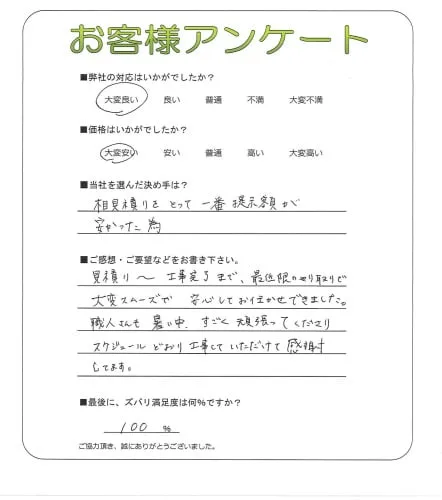 お客様アンケート
■弊社の対応はいかがでしたか?
大変良い 良い 普通 不満 大変不満
■価格はいかがでしたか?
大変安い 安い 普通 高い 大変高い
■当社を選んだ決め手は?
相見積りをとって一番提示額が
安かった為
■ご感想・ご要望などをお書き下さい。
見積り〜工事完了まで、最低限のやり取りで
大変スムーズで 安心してお任せできました。
職人さんも暑い中、すごく頑張ってくださり
スケジュールどおり工事していただけて感謝
してます。
■最後に、ズバリ満足度は何%ですか?
100 %
ご協力頂き、誠にありがとうございました。